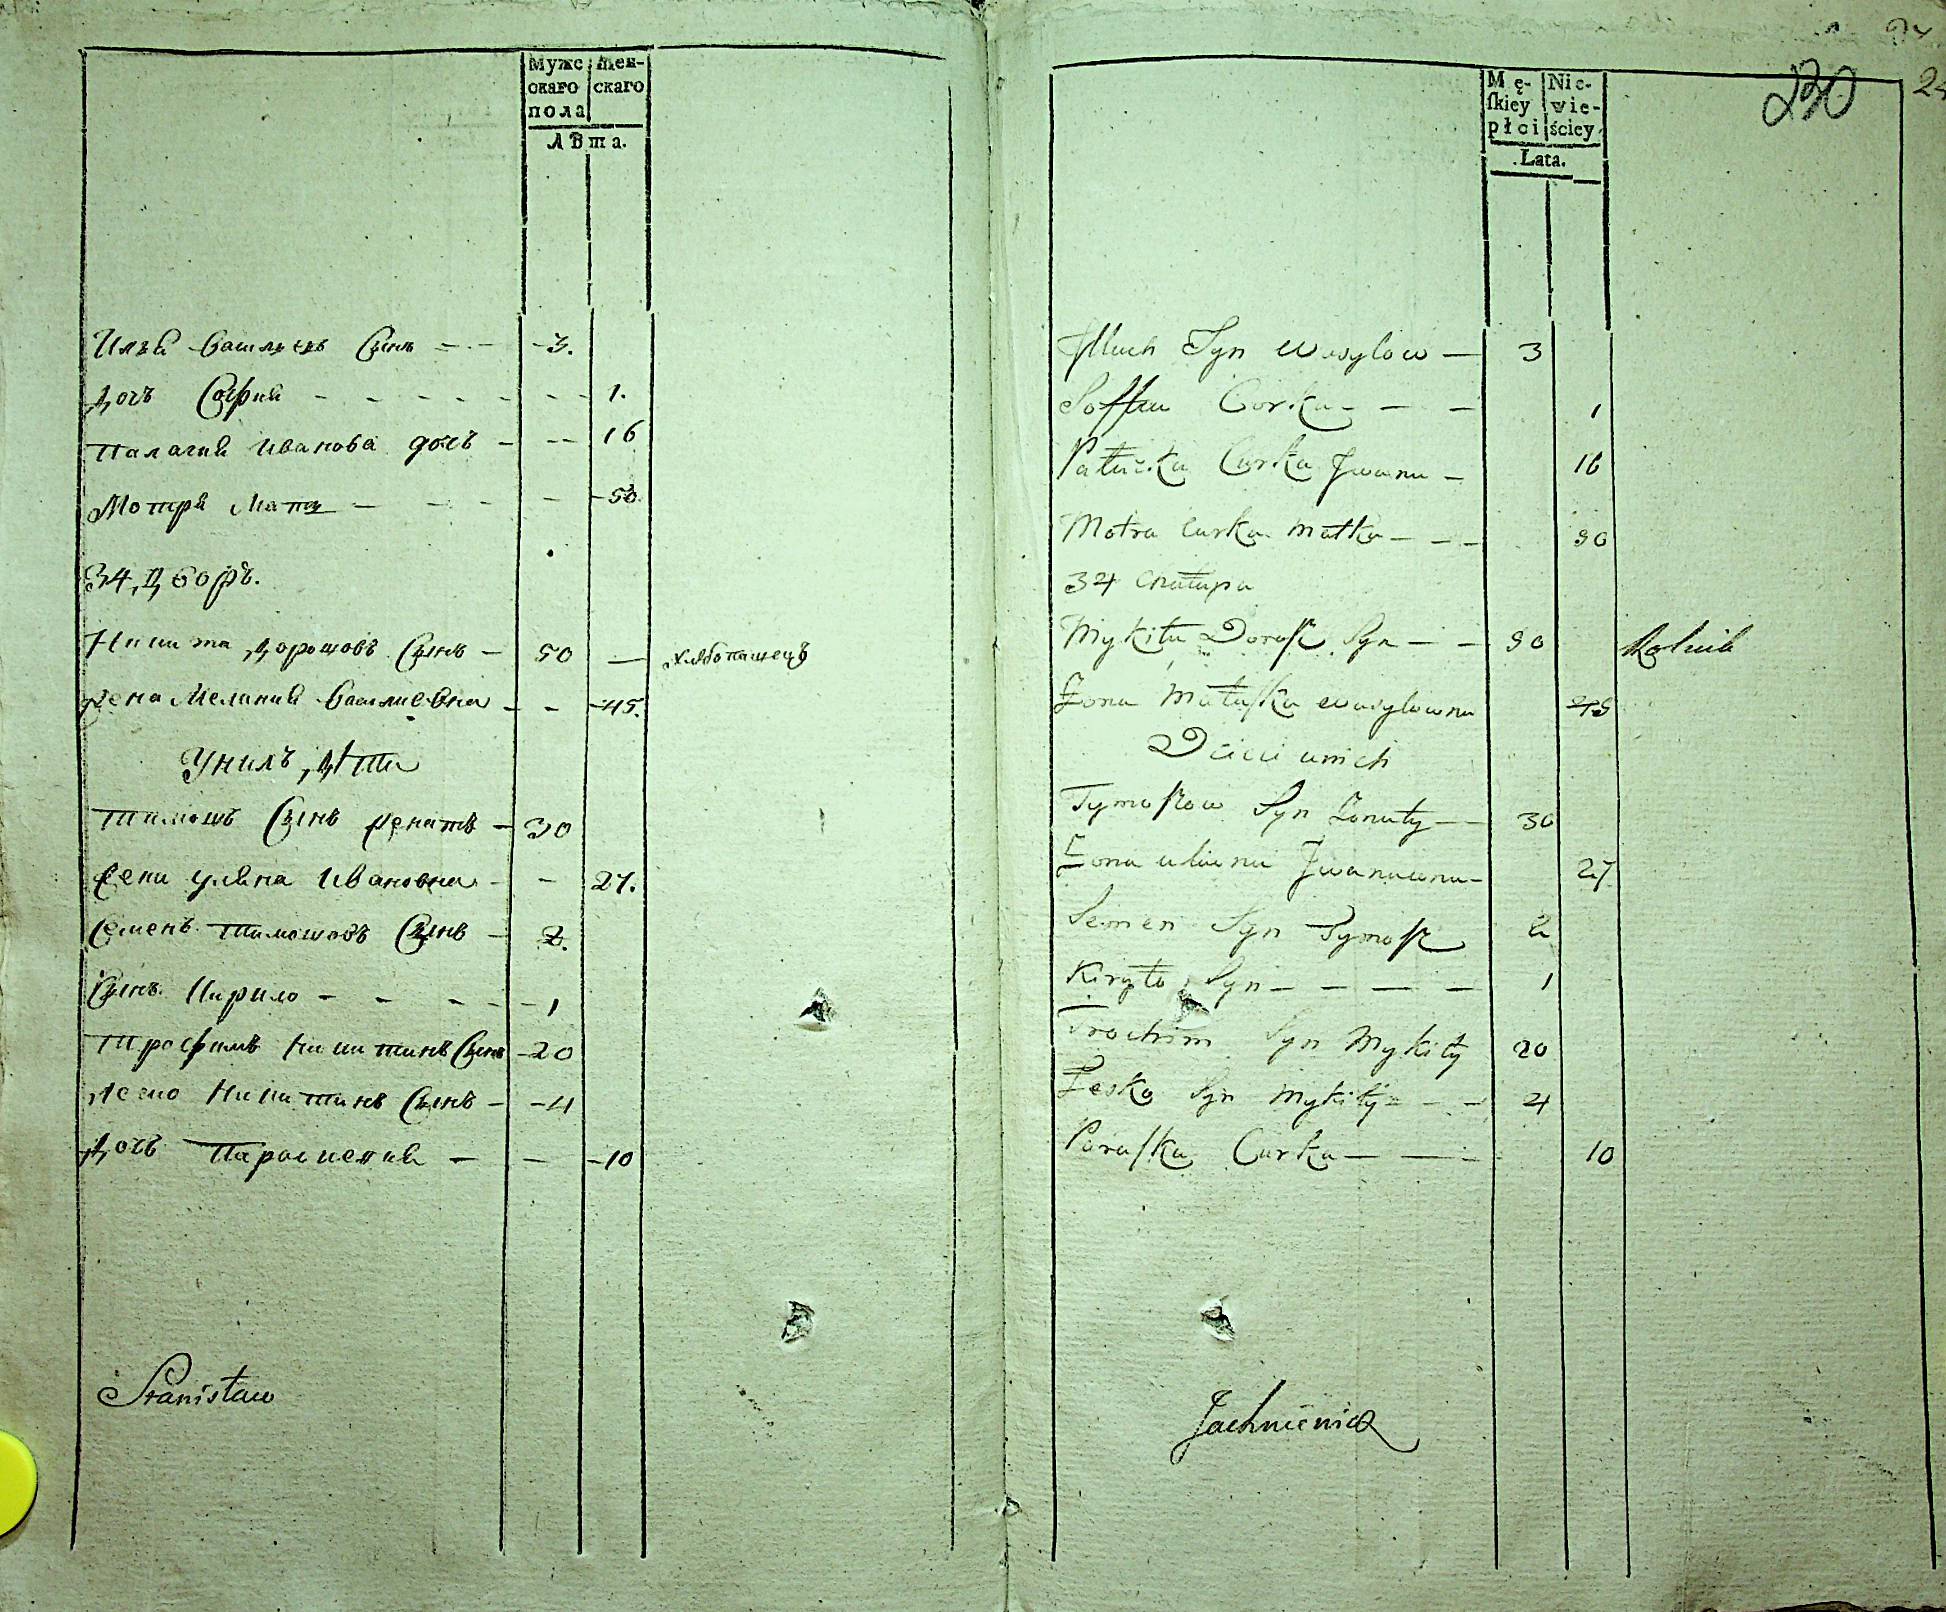 Мужс Жен-
скаго скаго
пола
ЛѢта.
Илья Василіевъ Сынъ 3.
Дочъ София 1.
Палагия Иванова дочъ 16
Мотря Мать 50
34, Дворъ.
Никита Дорошовъ Сынъ 50 хлѣбопашецъ
Жена Мелания Василиевна 45.
У нихъ Дѣти
Тимошъ Сынъ женатъ 30
Жена Уляна Ивановна 27.
Семенъ Тимошовъ Сынъ 2.
Сынъ Кирило 1
Трофимъ Никитинъ Сынъ 20
Леско Никитинъ Сынъ 4
Дочъ Параскевия 10
Stanisław
230
Mę- Nie-
skiey wie-
płci ściey
Lata.
Jlluch Syn Wasylow 3
Soffia Corka 1
Pałaszka Curka Jwana 16
Motra Curka matka 50
34 Chałupa
Mykita Dorosz Syn 50 Rolnik
Żona Małaszka Wasylowna 45
Dzieci u nich
Tymoszow Syn Żonaty 30
Żona uliana Jwanowna 27
Semen Syn Tymosz 2
Kiryło Syn 1
Trochim Syn Mykity 20
Lesko Syn Mykity 4
Paraska Curka 10
Jachniewicz